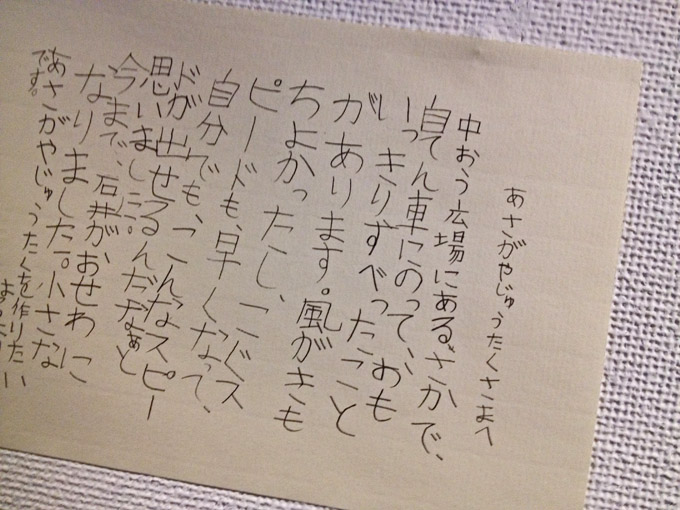 あさがやじゅうたくさまへ
中おう広場にあるさかで、
自てん車にのって、おも
いっきりすべったこと
があります。風がきも
ちよかったし、こぐス
ピードも、早くなって、
自分でも、こんなスピー
ドが出せるんだなぁと
思いました。
今まで、石井が、おせわに
なりました。小さな
あさがやじゅうたくを作りたい
です。